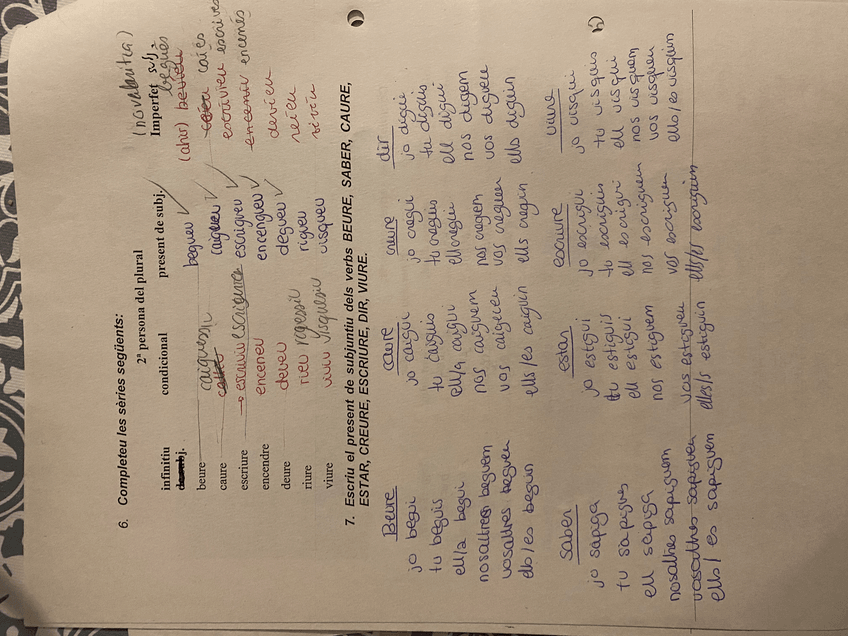 6. Completeu les sèries següents:
2ª persona del plural
(novalentra)
infinitiu condicional present de subj. Imperfet subj,
de subj. (ahir) bevíeu begués
beure begueu
caure caigueu caiés
escriure → escriviu escrigueu escrivíeu escrives
encendre enceneu encengueu enceníeu encenés
deure deveu degueu devíeu
riure rieu rigueu reíeu
viure viviu visqueu vivíeu
7. Escriu el present de subjuntiu dels verbs BEURE, SABER, CAURE,
ESTAR, CREURE, ESCRIURE, DIR, VIURE.
Beure
jo begui
tu beguis
ell/a begui
nosaltres beguem
vosaltres begueu
ells/es beguin
Caure
jo caigui
tu caiguis
ell/a caigui
nos caiguem
vos caigueu
ells/es caiguin
creure
jo cregui
tu creguis
ell cregui
nos creguem
vos cregueu
ells creguin
dir
jo digui
tu diguis
ell digui
nos diguem
vos digueu
ells diguin
saber
jo sapiga
tu sapigues
ell sapiga
nosaltres sapiguem
vosaltres sapigueu
ells/es sapiguem
estar
jo estigui
tu estiguis
ell estigui
nos estiguem
vos estigueu
elles/s estiguin
escriure
jo escrigui
tu escriguis
ell escrigui
nos escriguem
vos escriguem
ell/es escriguin
viure
jo visqui
tu visquis
ell visqui
nos visquem
vos visqueu
ells/es visquin